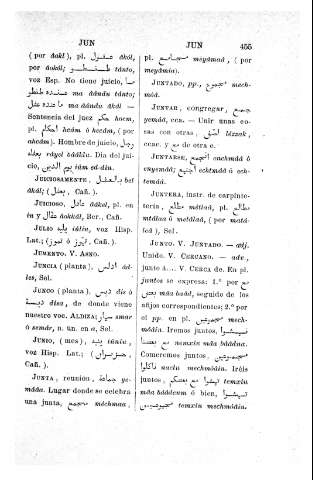 JUN
JUN 455
(por âakl), pl. عقول âokól,
por âokól; طنطو tánto,
voz Esp. No tiene juicio, ما
عنده طنطو ma ându tánto;
ما عنده عقل ma ându âkal —
Sentencia del juez حكم hocm
pl. احكم hcám ó hocám, (por
ahcám). Hombre de juicio, رجل
بعقله ráyel bâáklu. Dia del jui-
cio, يوم الدين iúm ed-din.
JUICIOSAMENTE, بالعقل bel
âkál; (بعقل, Cañ.).
JUICIOSO, عاقل âákel, pl. en
ín y عقال âokkál, Ber., Cañ.
JULIO يليه iúlia, voz Hisp.
Lat.; (تموز ó يوليز, Cañ.).
JUMENTO. V. ASNO.
JUNCIA (planta), ادلس ad-
les, Sol.
JUNCO (planta) ديس dís ó
ديسة dísa, de donde viene
nuestro voc. ALDIZA; سمار smár
ó semár, n. un. en a, Sol.
JUNIO, (mes), يليه iúnio,
voz Hisp. Lat.; (حزيران,
Cañ.).
JUNTA, reunion, جماعة ye-
máâa. Lugar donde se celebra
una junta, مجمع méchmaa,
pl. مجامع meyámaâ, (por
meyámia).
JUNTADO, pp., مجموع mech-
móâ.
JUNTAR, congregar, جمع
yemáâ, cca. — Unir unas co-
sas con otras, الصق lázzak,
ccar. y مع de otra c.
JUNTARSE, اتجمع enchmáâ ó
enyemáâ; اجتمع echtmáâ ó ech-
temáâ.
JUNTERA, instr. de carpinte-
tería, مطلع mátlaâ, pl. مطالع
mtálaa ó metálaâ, (por matá-
leâ), Sol.
JUNTO. V. JUNTADO. — adj.
Unido. V. CERCANO. — adv.,
junto á... V. CERCA de. En pl.
juntos se expresa: 1.° por مع
بعض mâa baâd, seguido de los
afijos correspondientes; 2.° por
el pp. en pl. مجموعين mech-
móâin. Iremos juntos, نمشيوا
مع بعضنا nemxíu mâa bâádna.
Comeremos juntos, مجموعين
ناكلوا naclu mechmóâin. Iréis
juntos, تمشيوا مع بعضكم temxíu
mâa bâádcum ó bien, تمشيوا
مجموعين temxíu mechmóâin.